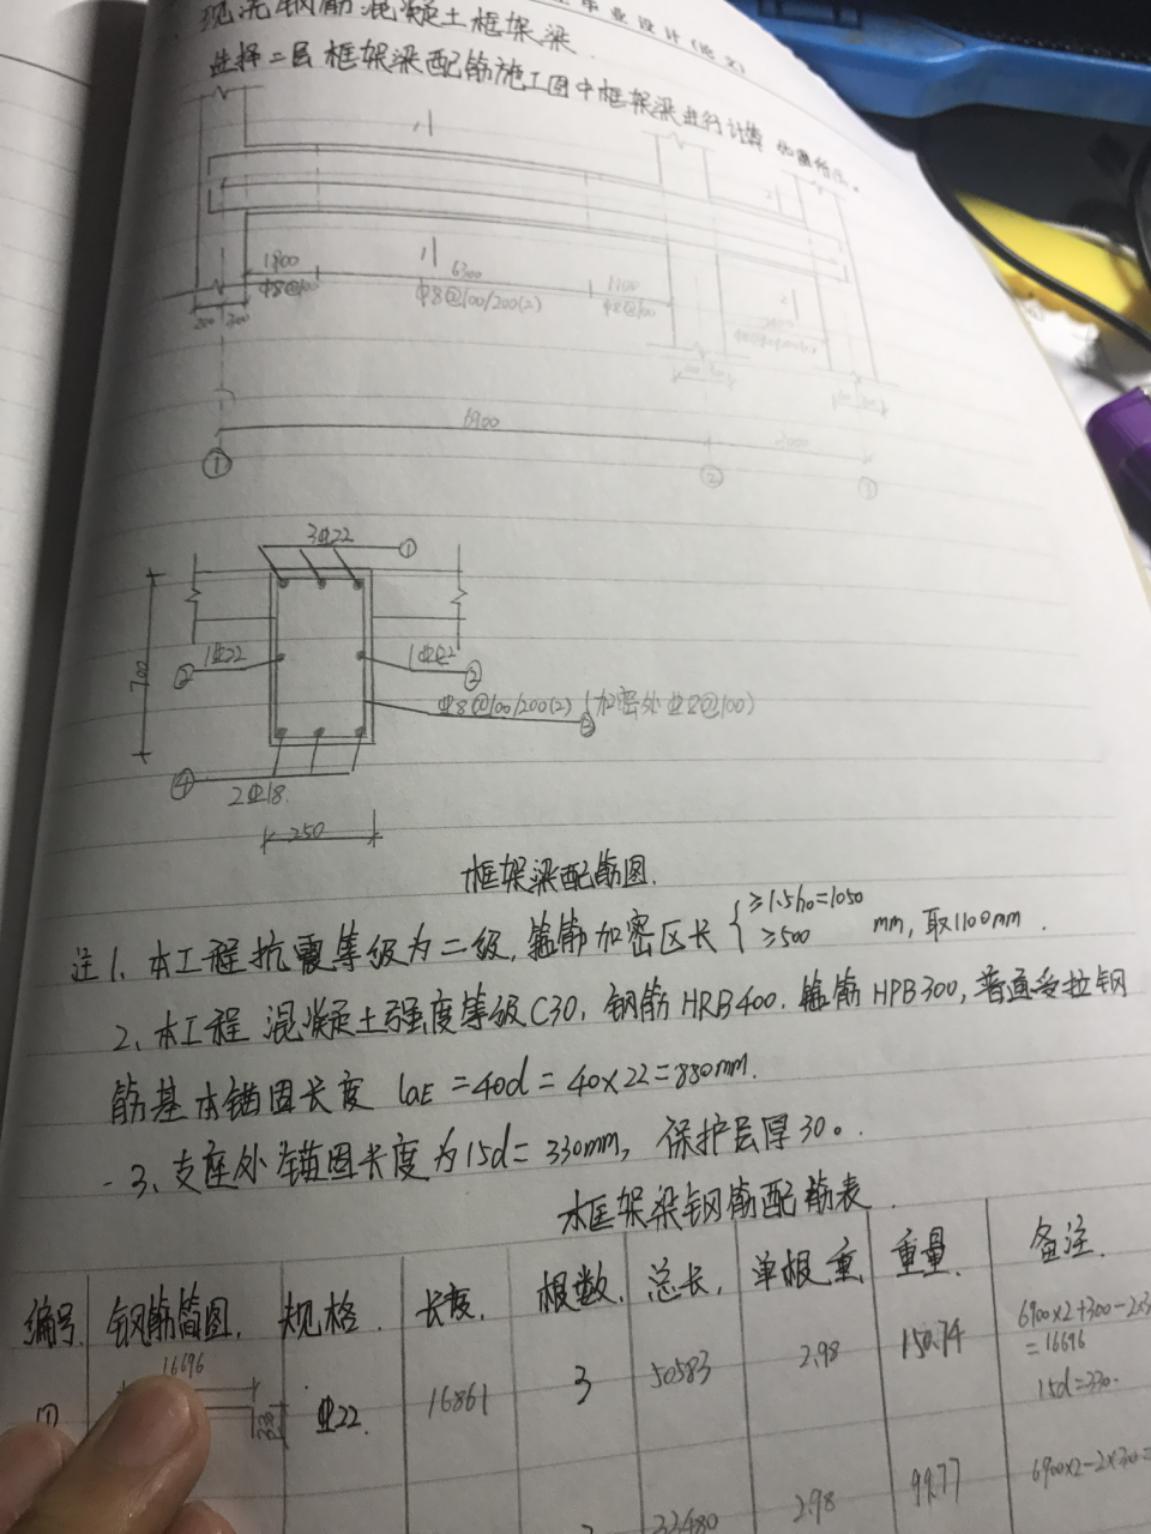 业毕业设计(论文)
现浇钢筋混凝土框架梁
选择二层框架梁配筋施工图中框架梁进行计算
1800
6300
1100
Φ8@100
Φ8@100/200(2)
Φ8@100
6900
①
②
3Φ22
①
700
②
1Φ22
1Φ22
②
Φ8@100/200(2) (加密处Φ8@100)
③
④
2Φ18
250
框架梁配筋图.
注1、本工程抗震等级为二级,箍筋加密区长 { ≥1.5h₀=1050 ≥500 mm, 取1100mm.
2、本工程 混凝土强度等级C30, 钢筋HRB400. 箍筋HPB300, 普通受拉钢
筋基本锚固长度 laE =40d = 40×22=880mm.
3、支座处锚固长度为15d= 330mm, 保护层厚30。.
框架梁钢筋配筋表
编号. 钢筋简图. 规格. 长度. 根数. 总长. 单根重 重量. 备注.
① 16696 330 Φ22. 16861 3 50583 2.98 150.74 6900×2+300-2×3
=16696
15d=330.
33480 2.98 99.77 6900×2-2×300=